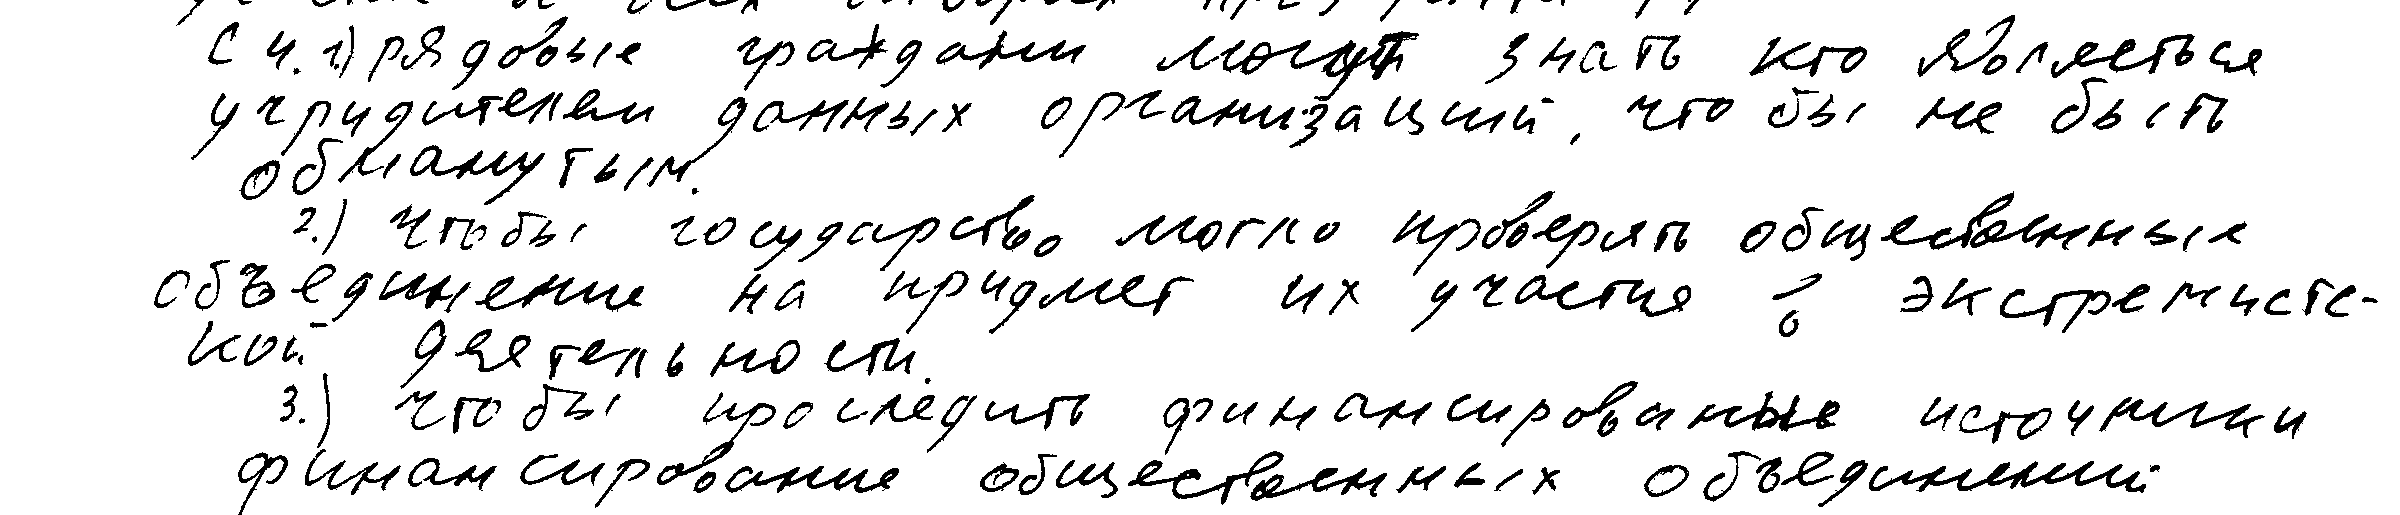 С 4. 1.) рядовые граждани могут знать кто являеться
учридителем данных организаций, что бы не быть
обманутым.
2.) чтобы государство могло проверять общественные
объединение на придмет их участия в экстремистс-
кой деятельности.
3.) чтобы проследить финансирование источники
финансирование общественных объединений